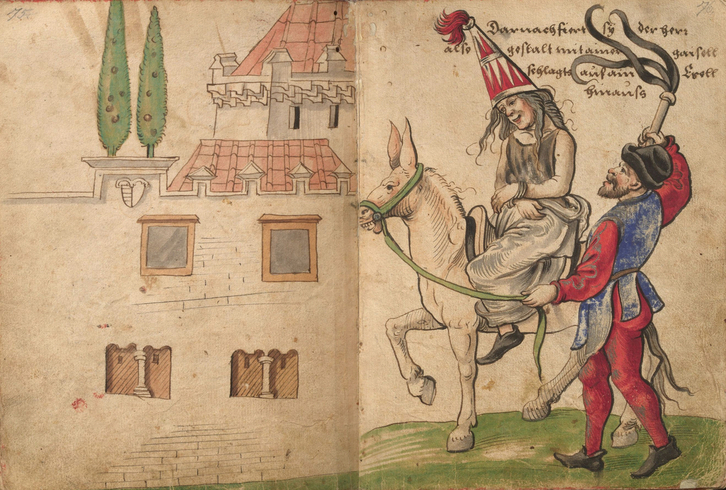 Darnach fiert sy der herr
also gestalt mit ainer gaisell
schlagts auf aim Esell
hinauss